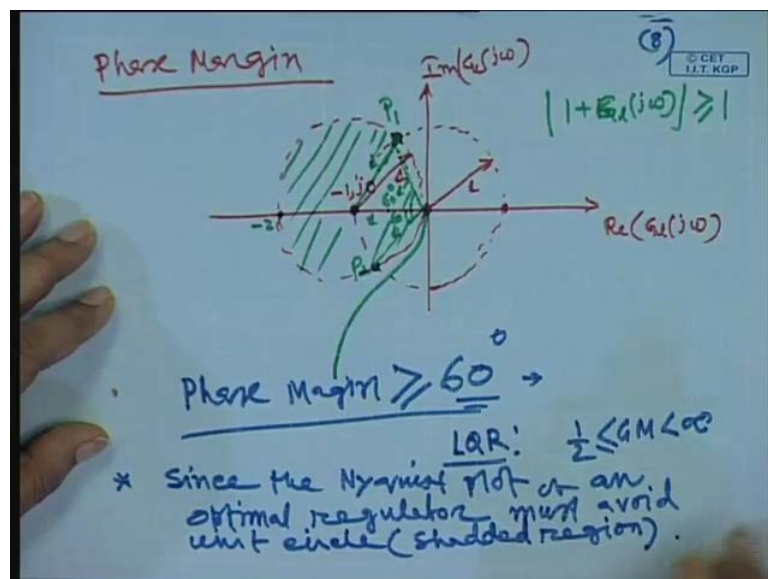 Phase Mergin
(8)
© CET
I.I.T. KGP
Im(Gl(jω)
|1+Gl(jω)| ≥ 1
P1
-1, j0
-2
1
60°
P2
Re(Gl(jω)
Phase Magin ≥ 60° →
LQR: 1/2 ≤ GM < ∞
* Since the Nyquist plot of an
optimal regulator must avoid
unit circle (shaded region).